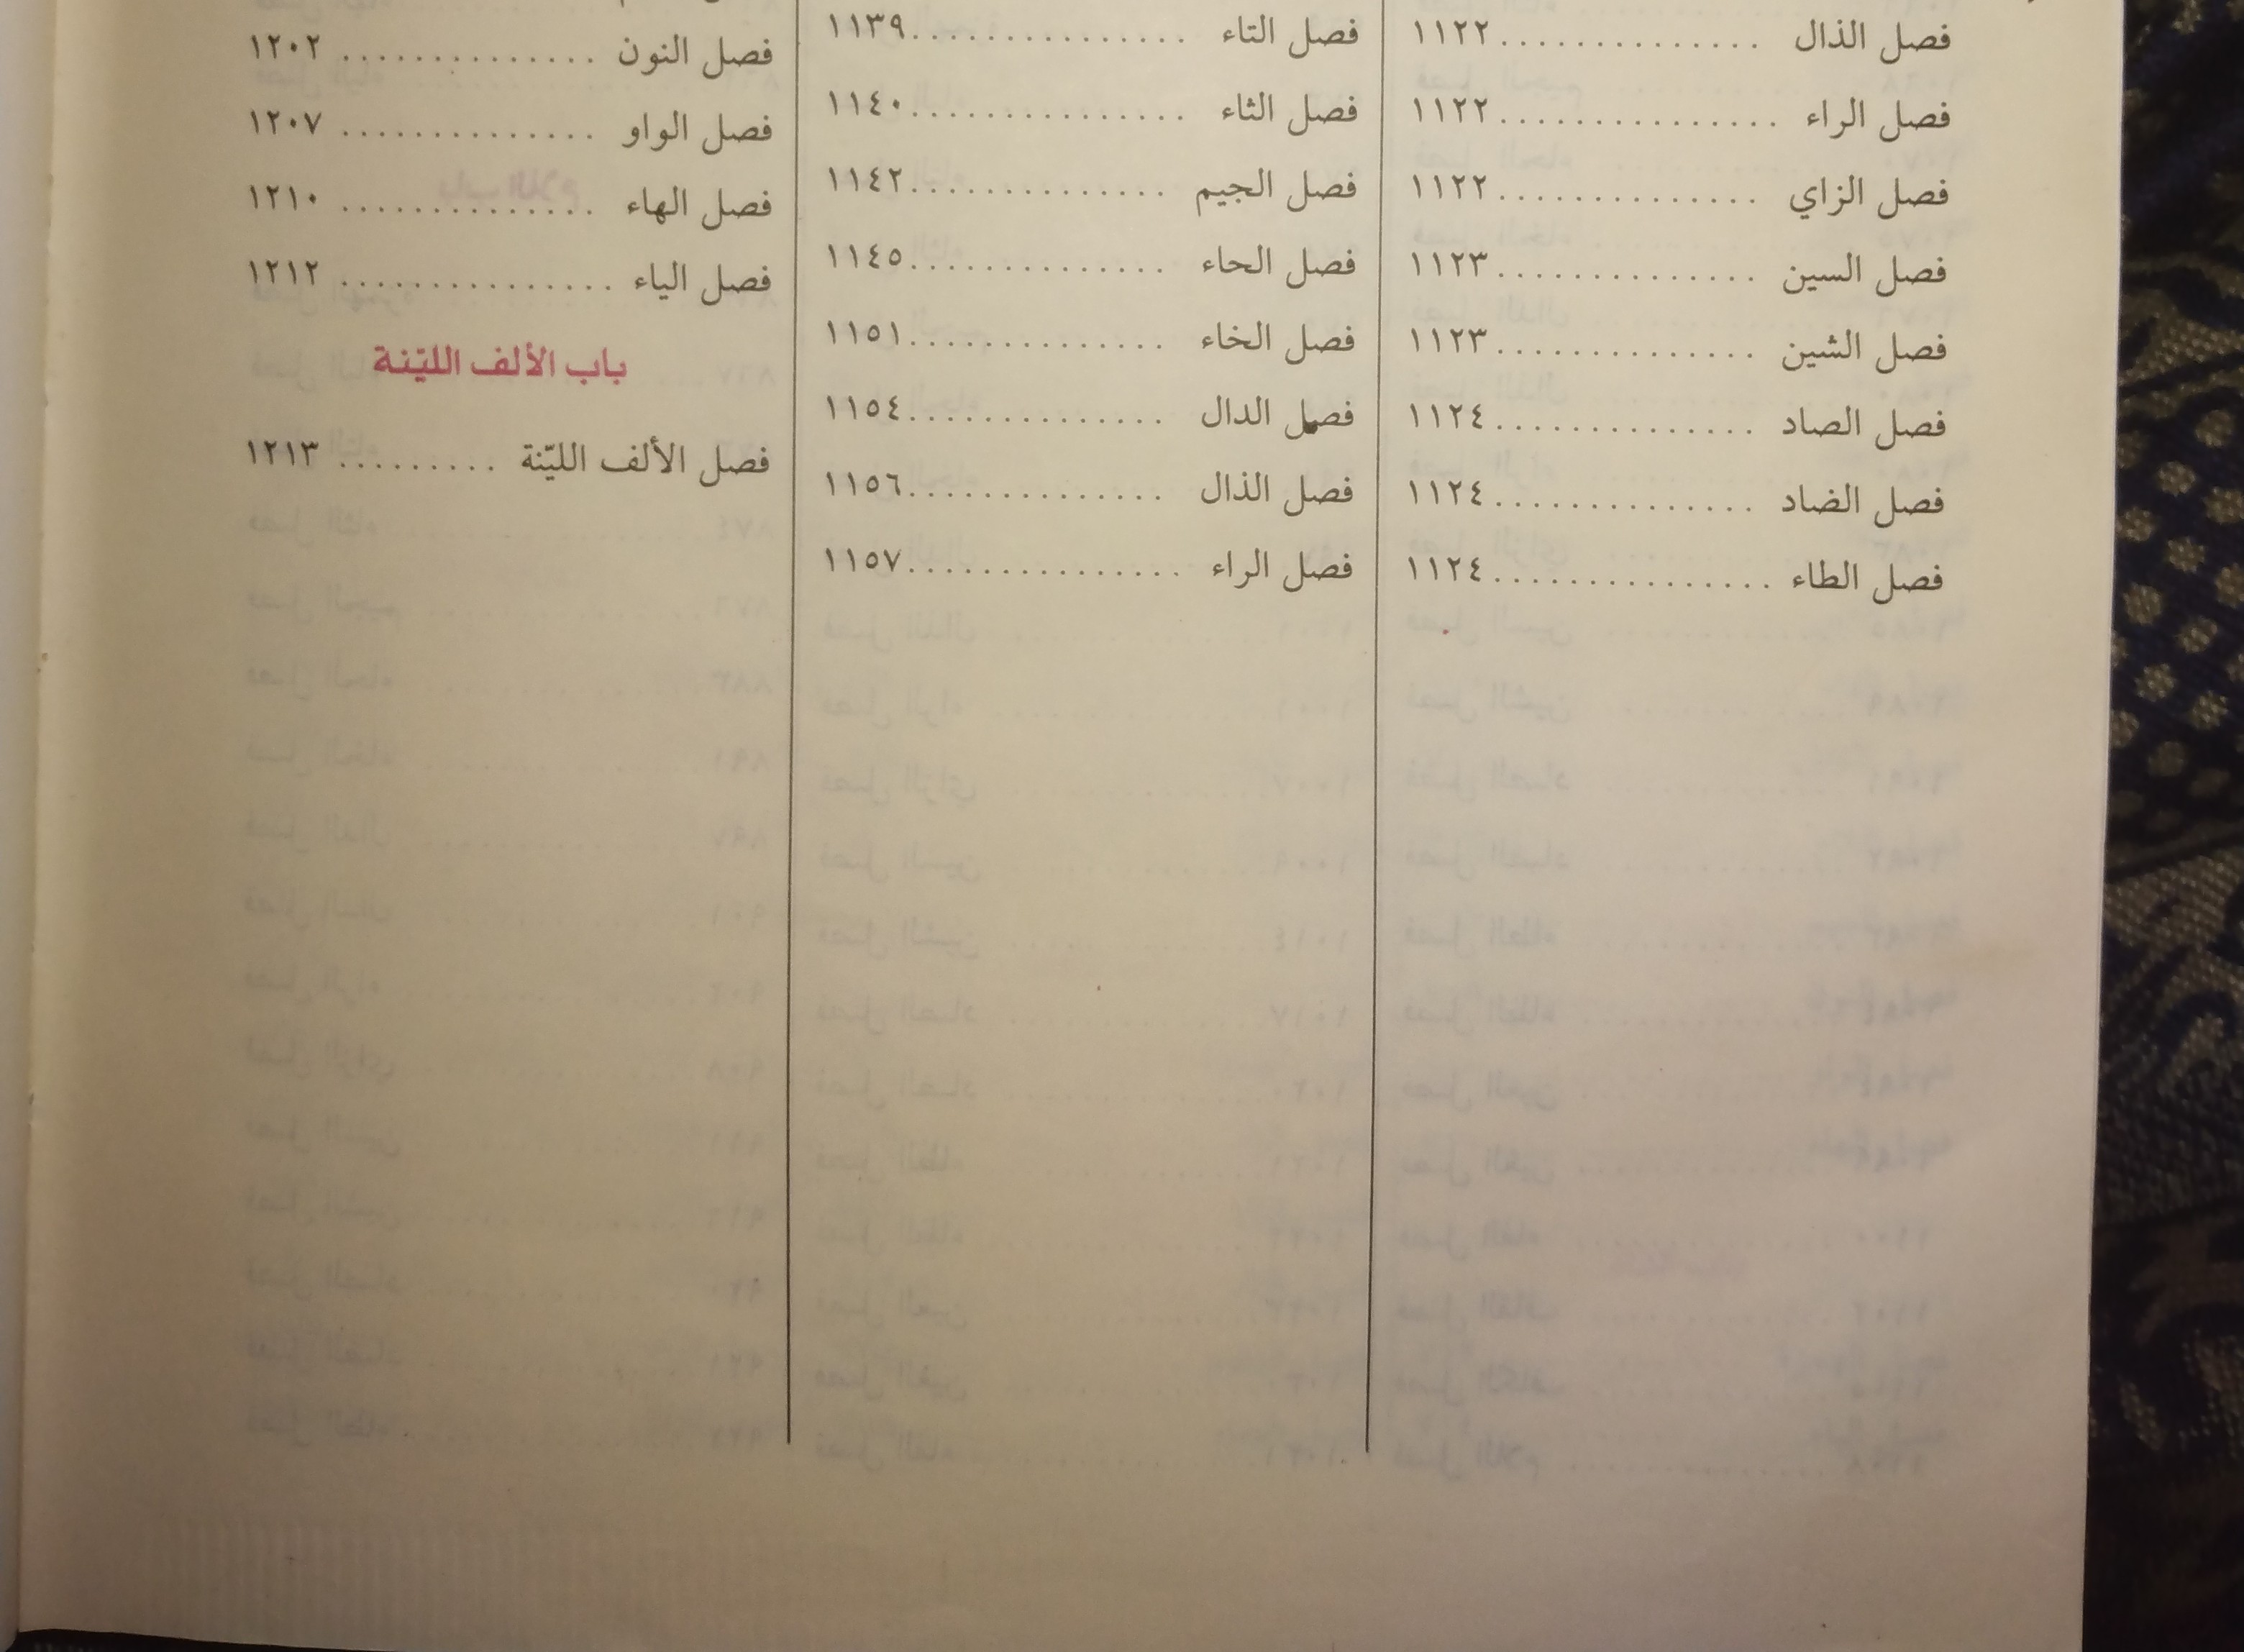 فصل الذال .............. ١١٢٢
فصل الراء ............... ١١٢٢
فصل الزاي .............. ١١٢٢
فصل السين .............. ١١٢٣
فصل الشين .............. ١١٢٣
فصل الصاد .............. ١١٢٤
فصل الضاد .............. ١١٢٤
فصل الطاء ............... ١١٢٤
فصل التاء ............... ١١٣٩
فصل الثاء ............... ١١٤٠
فصل الجيم .............. ١١٤٢
فصل الحاء .............. ١١٤٥
فصل الخاء .............. ١١٥١
فصل الدال .............. ١١٥٤
فصل الذال .............. ١١٥٦
فصل الراء ............... ١١٥٧
فصل النون .............. ١٢٠٢
فصل الواو .............. ١٢٠٧
فصل الهاء .............. ١٢١٠
فصل الياء ............... ١٢١٢
باب الألف الليّنة
فصل الألف الليّنة ......... ١٢١٣